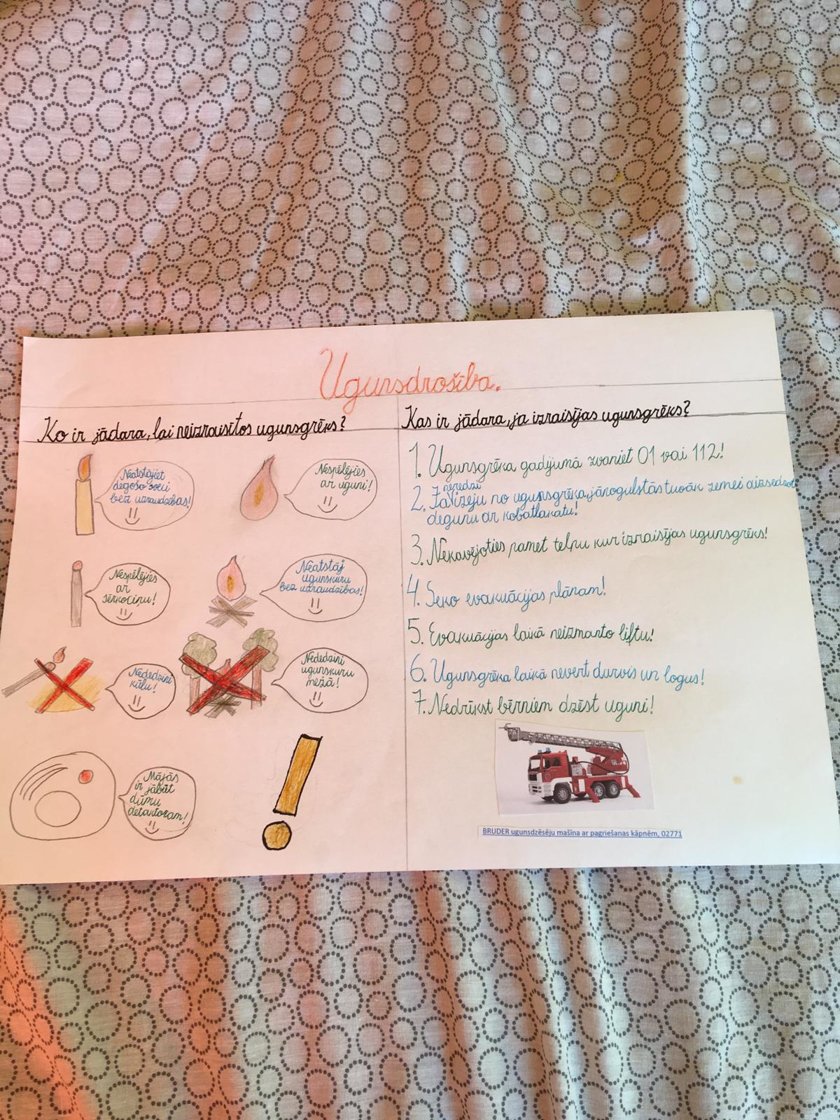 Ugunsdrošība.
Ko ir jādara, lai neizraisītos ugunsgrēks?
Neatstājiet
degošo sveci
bez uzraudzības!
Nespēlējies
ar uguni!
Nespēlējies
ar
sērkociņu!
Neatstāj
ugunskuru
bez uzraudzības!
Nededzini
kūlu!
Nededzini
ugunskuru
mežā!
Mājās
ir jābūt
dūmu
detektoram!
Kas ir jādara, ja izraisījas ugunsgrēks?
1. Ugunsgrēka gadījumā zvaniet 01 vai 112!
neredzi
2. Ja izeju no ugunsgrēka, jānogulstās tuvāk zemei aizsedzot
degunu ar kabatlakatu!
3. Nekavējoties pamet telpu kur izraisījas ugunsgrēks!
4. Seko evakuācijas plānam!
5. Evakuācijas laikā neizmanto liftu!
6. Ugunsgrēka laikā never durvis un logus!
7. Nedrīkst bērniem dzēst uguni!
BRUDER ugunsdzēsēju mašīna ar pagriešanas kāpnēm, 02771